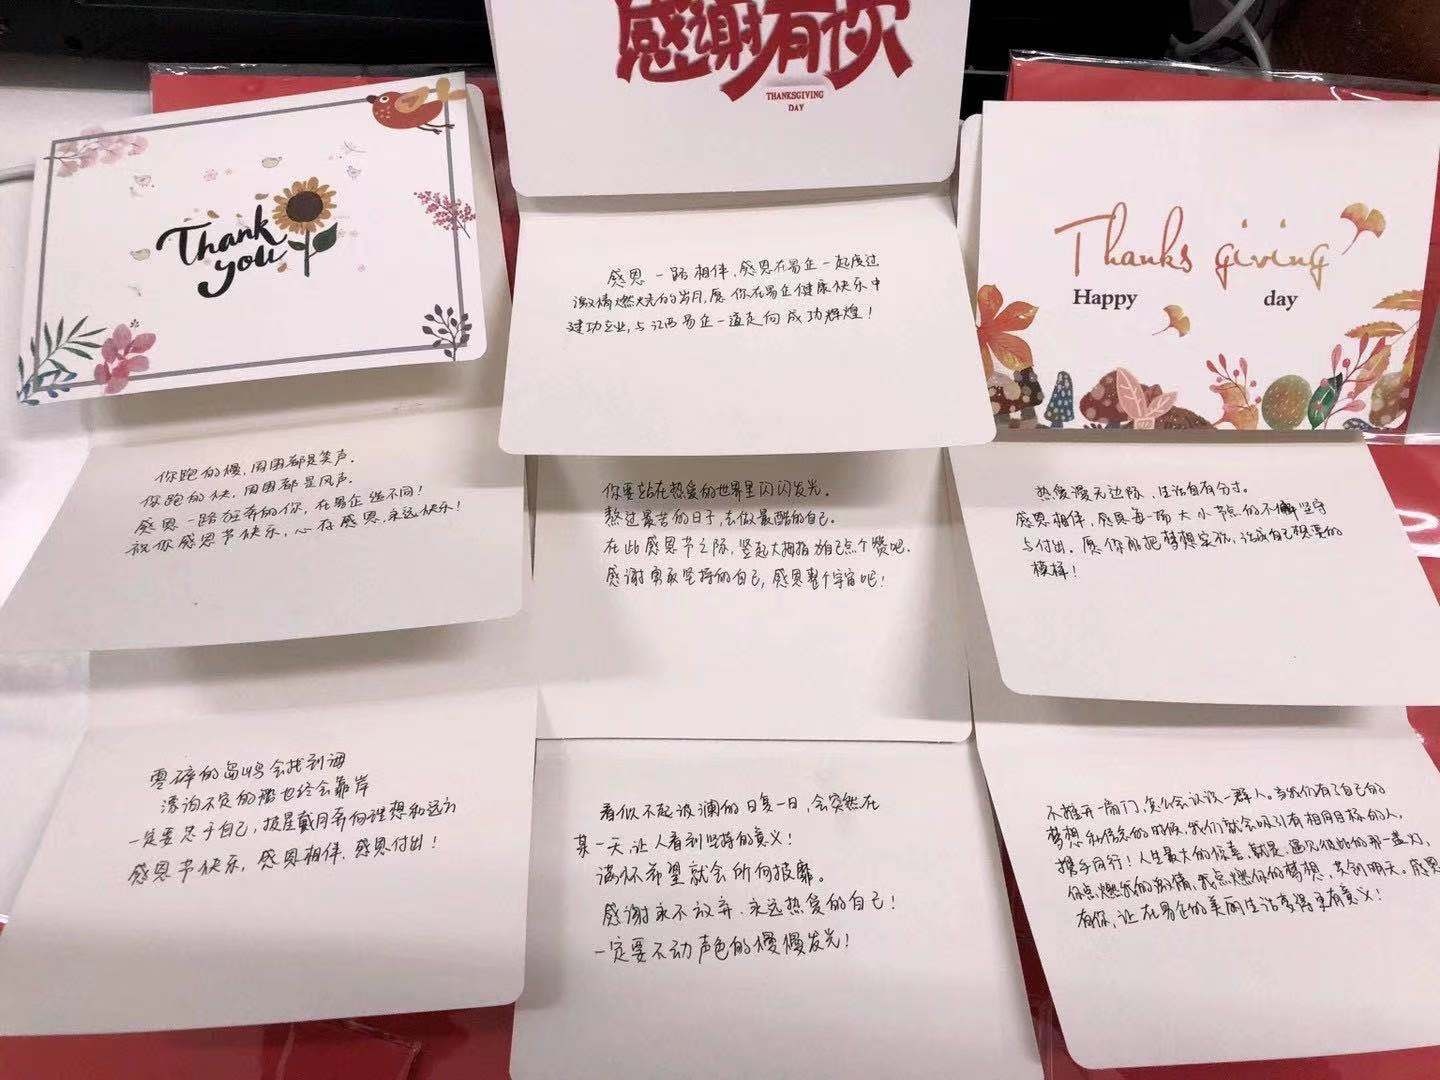 感谢有你
THANKSGIVING
DAY
Thank
you
Thanks giving
Happy day
感恩一路相伴,感恩在易企一起度过
激情燃烧的岁月,愿你在易企健康快乐中
建功立业,与江西易企一道走向成功辉煌!
你跑的慢,周围都是笑声.
你跑的快,周围都是风声.
感恩一路狂奔的你,在易企绝不同!
祝你感恩节快乐,心存感恩,永远快乐!
你要站在热爱的世界里闪闪发光.
熬过最苦的日子,去做最酷的自己.
在此感恩节之际,竖起大拇指为自己点个赞吧.
感谢勇敢坚持的自己,感恩整个宇宙吧!
热爱漫无边际,生活自有分寸.
感恩相伴,感恩每一场大小节点的不懈坚守
与付出.愿你能把梦想实现,活成自己想要的
模样!
零碎的岛屿会找到海
漂泊不定的船也终会靠岸
一定要忠于自己,披星戴月奔向理想和远方
感恩节快乐,感恩相伴.感恩付出!
看似不起波澜的日复一日,会突然在
某一天,让人看到坚持的意义!
满怀希望就会所向披靡。
感谢永不放弃.永远热爱的自己!
一定要不动声色的慢慢发光!
不推开一扇门,怎么会认识一群人。当我们有了自己的
梦想和信念的时候,我们就会吸引有相同目标的人,
携手同行!人生最大的惊喜,就是:遇见彼此的那一盏灯,
你点燃我的激情,我点燃你的梦想,共创明天。感恩
有你,让在易企的美丽生活变得更有意义!